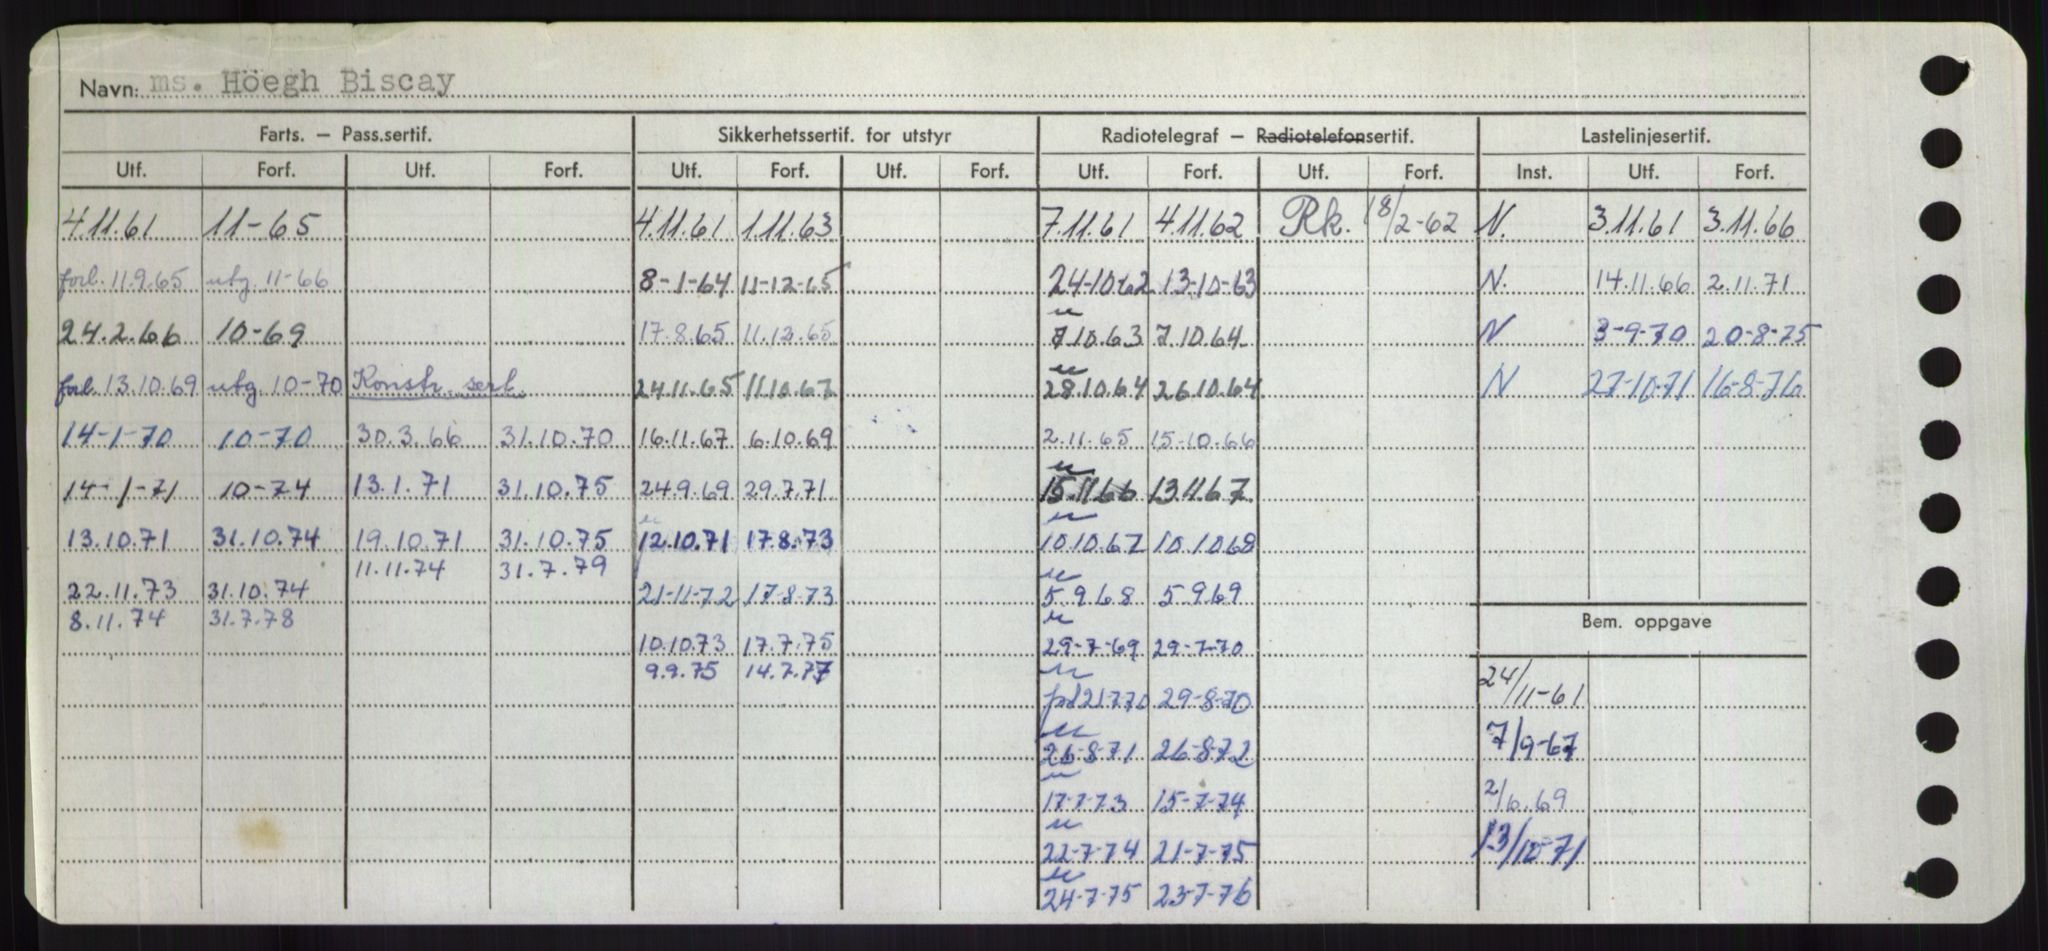 Navn: ms. Höegh Biscay
Farts. – Pass.sertif. Sikkerhetssertif. for utstyr Radiotelegraf – Radiotelefonsertif. Lastelinjesertif.
Utf. Forf. Utf. Forf. Utf. Forf. Utf. Forf. Utf. Forf. Utf. Forf. Inst. Utf. Forf.
4.11.61 11-65 4.11.61 1.11.63 7.11.61 4.11.62 Rk. 18/2-62 N. 3.11.61 3.11.66
forl. 11.9.65 utg. 11-66 8-1-64 11-12-65 24-10-62 13-10-63 N. 14.11.66 2.11.71
24.2.66 10-69 17.8.65 11.12.65 7.10.63 7.10.64 N 3-9-70 20-8-75
forl. 13.10.69 utg. 10-70 Konstr. sert. 24.11.65 11.10.67 28.10.64 26.10.64 N 27-10-71 16-8-76
14-1-70 10-70 30.3.66 31.10.70 16.11.67 6.10.69 2.11.65 15-10.66
14-1-71 10-74 13.1.71 31.10.75 24.9.69 29.7.71 15.11.66 13.11.67
13.10.71 31.10.74 19.10.71 31.10.75 12.10.71 17.8.73 10.10.67 10.10.68
11.11.74 31.7.79
22.11.73 31.10.74 21-11-72 17-8-73 5.9.68 5.9.69
8.11.74 31.7.78 Bem. oppgave
10.10.73 17.7.75 29-7-69 29-7-70
9.9.75 14.7.77 24/11-61
21.7.70 29-8-70
26-8-71 26-8-72 7/9-67
17-7-73 15-7-74 2/6.69
22-7-74 21-7-75 13/10-71
24-7-75 23-7-76